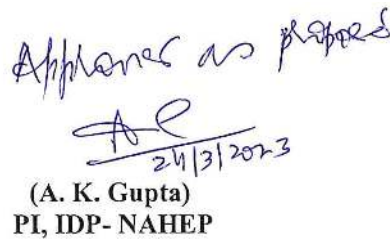 Approved as proposed
24/3/2023
(A. K. Gupta)
PI, IDP- NAHEP